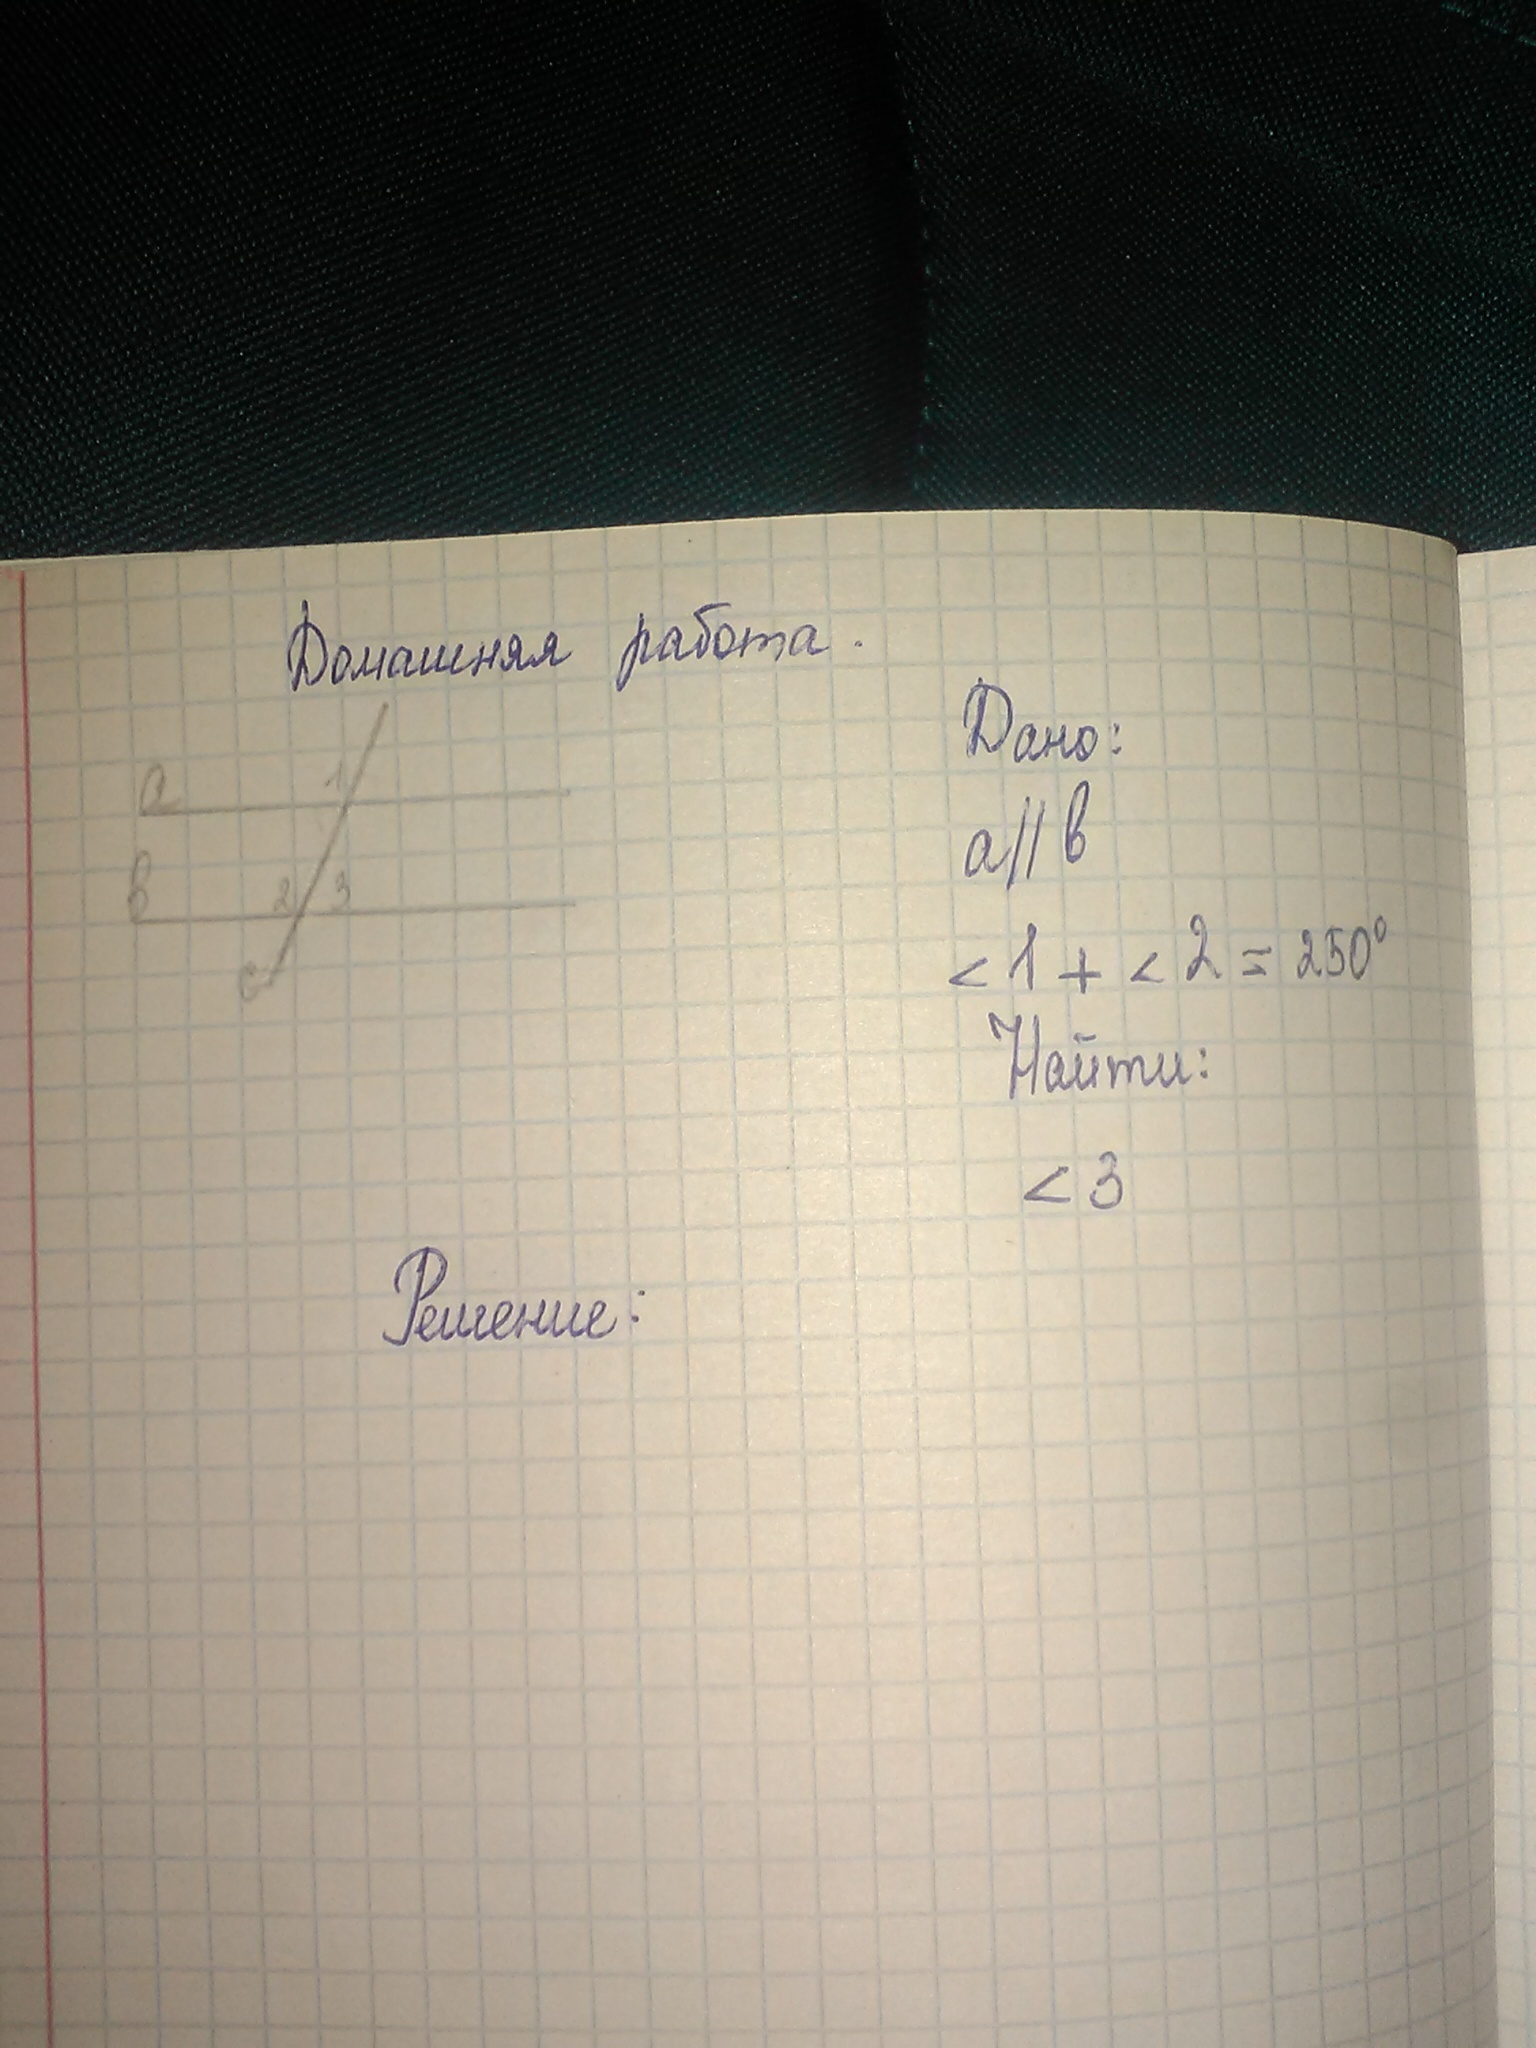 Домашняя работа.
a 1
в 2 3
c
Дано:
a // в
< 1 + < 2 = 250°
Найти:
< 3
Решение: